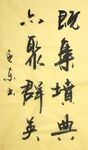 既集墳典
亦聚群英